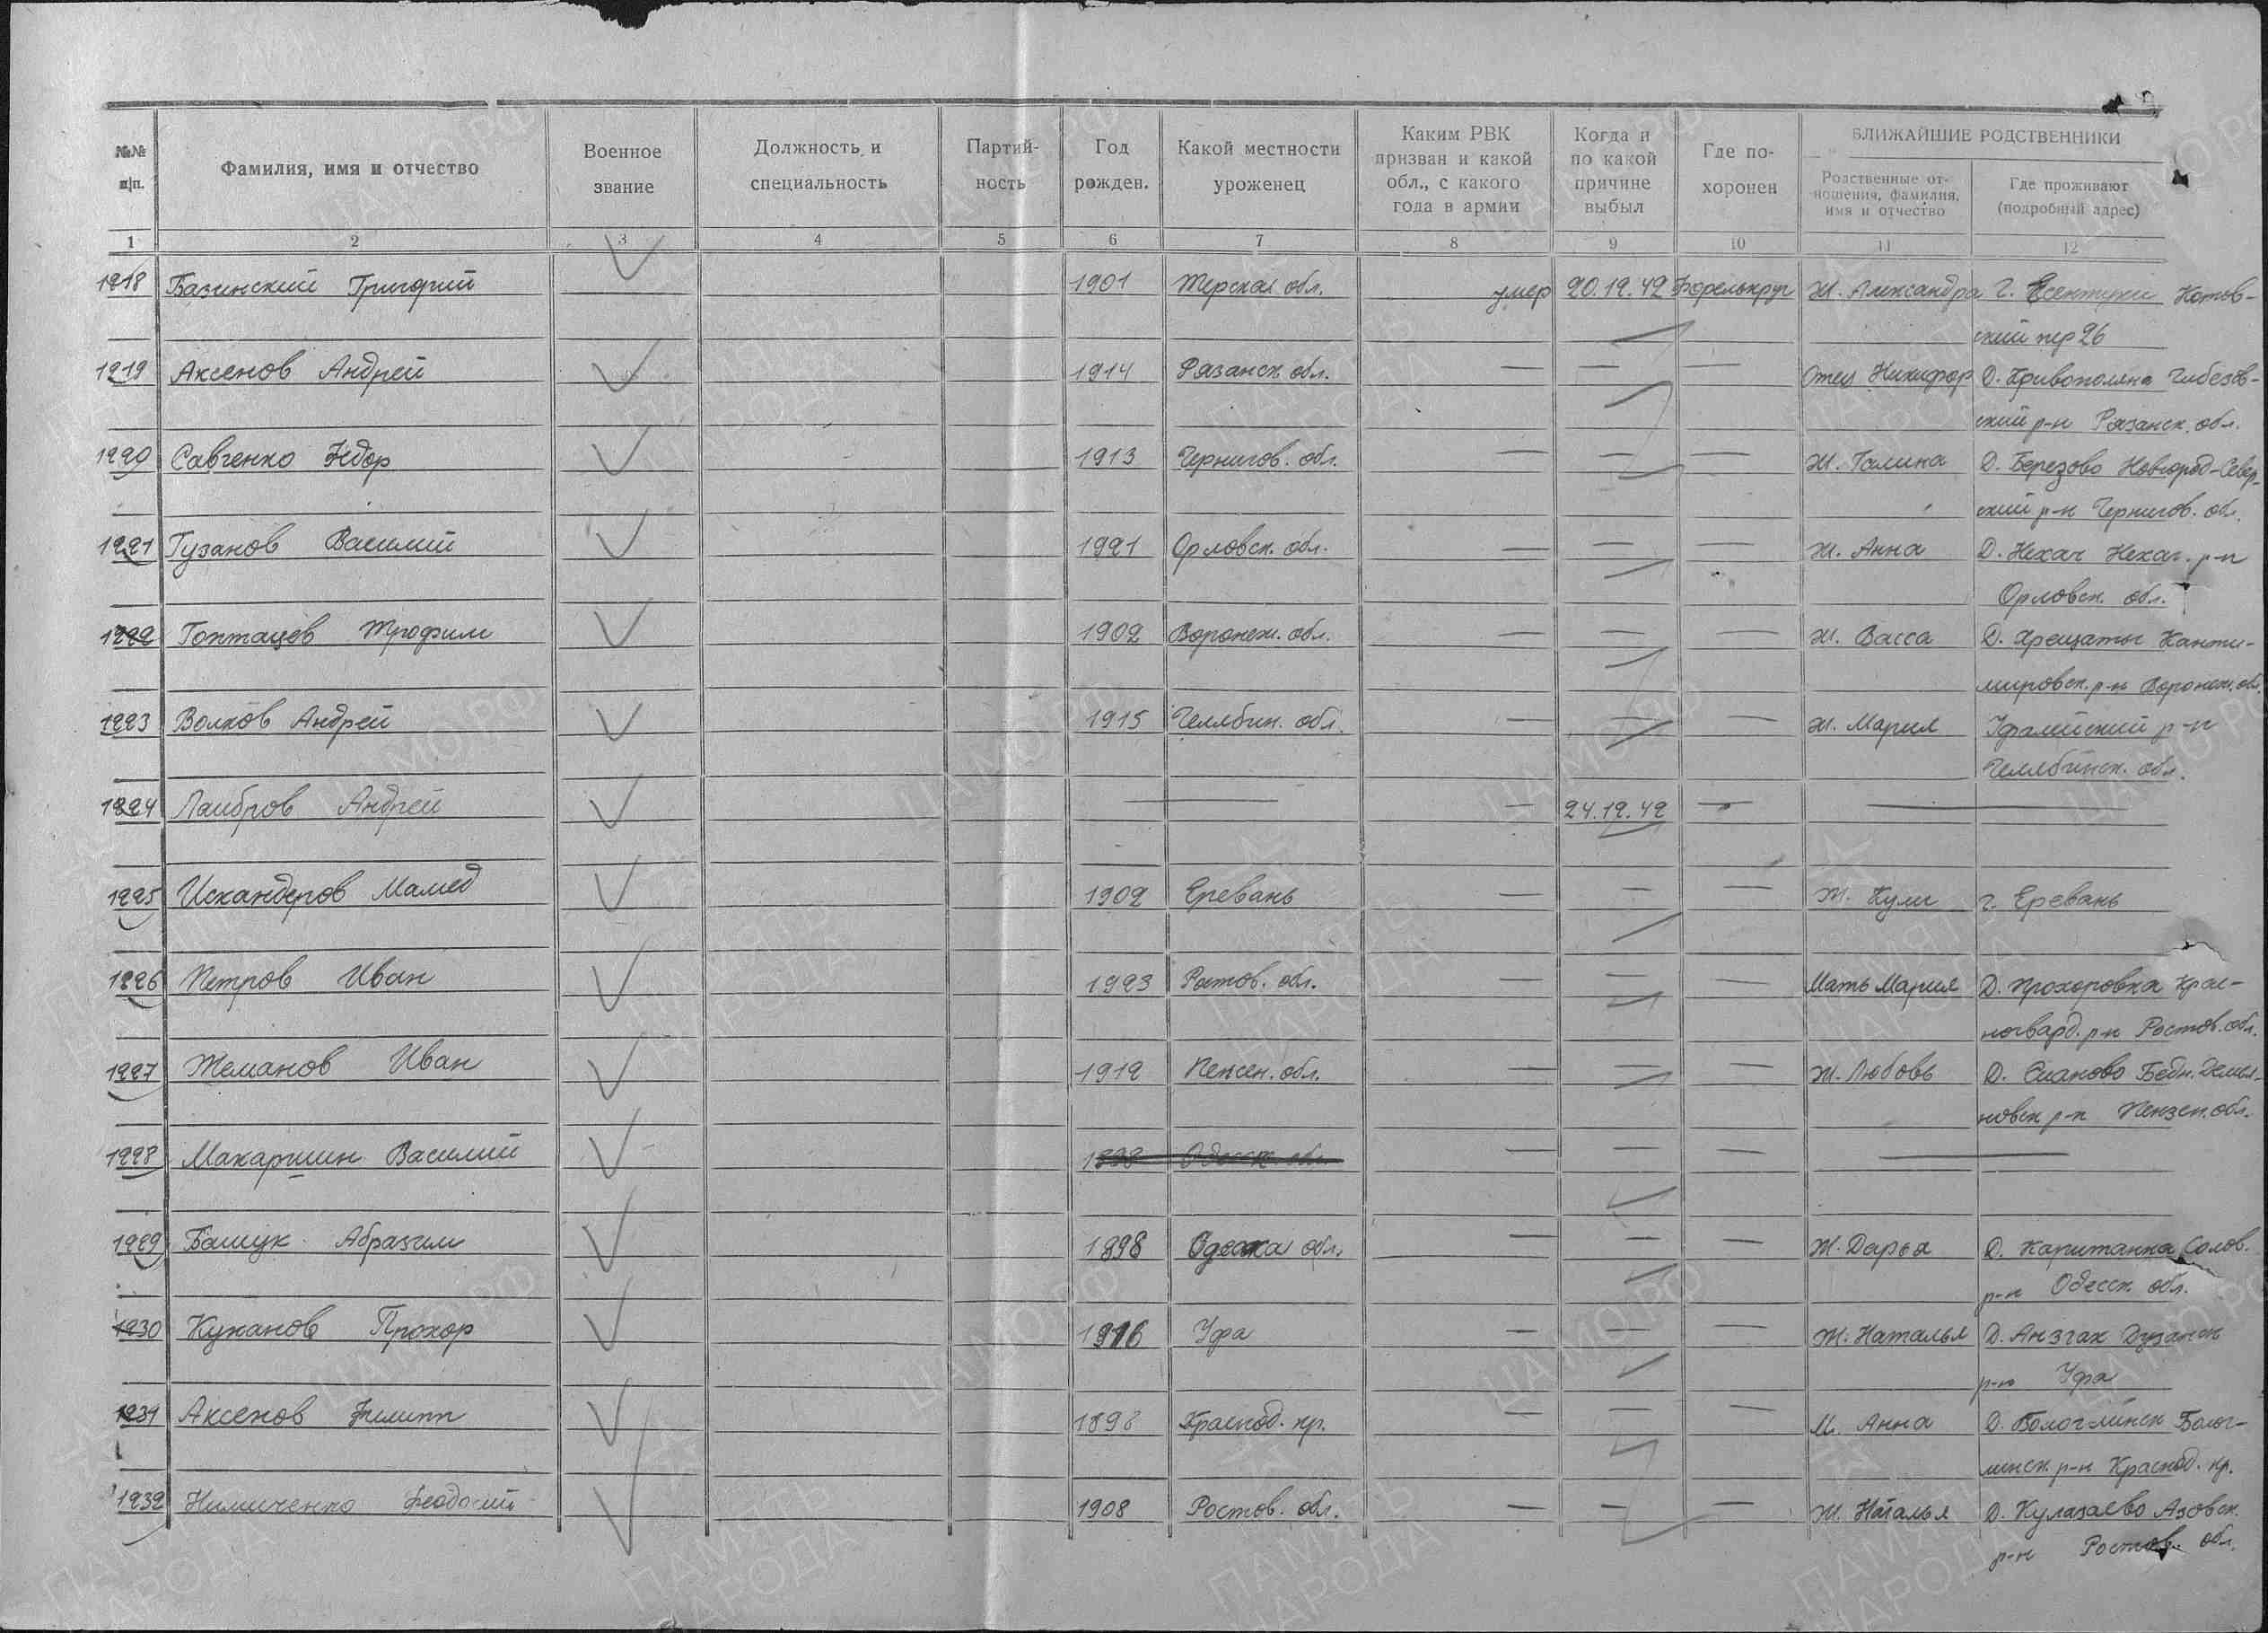 №№ п|п.
Фамилия, имя и отчество
Военное звание
Должность и специальность
Партий-ность
Год рожден.
Какой местности уроженец
Каким РВК призван и какой обл., с какого года в армии
Когда и по какой причине выбыл
Где по-хоронен
БЛИЖАЙШИЕ РОДСТВЕННИКИ
Родственные от-ношения, фамилия, имя и отчество
Где проживают (подробный адрес)
1 2 3 4 5 6 7 8 9 10 11 12
1218 Базинский Григорий 1901 Терская обл. умер 20.12.42 Форелькруг Ж. Александра г. Есентуки Котов-
ский пер 26
1219 Аксенов Андрей 1914 Рязанск обл. — — — Отец Никифор Д. Кривополяна
ский р-н Рязанск. обл.
1220 Савченко Федор 1913 Чернигов. обл. — — — Ж. Галина Д. Березово Новгород-Север-
ский р-н Чернигов. обл.
1221 Гузанов Василий 1921 Орловск. обл. — — — Ж. Анна Д. Нехач Нехач. р-н
Орловск. обл.
1222 Гоптацев Трофим 1902 Воронеж. обл. — — — Ж. Васса Д. Хрещаты Канти-
мировск. р-н Воронеж. обл.
1223 Волков Андрей 1915 Челябин. обл. — — — Ж. Мария Уфалейский р-н
Челябинск. обл.
1224 Лаибров Андрей — — 24.12.42 — —
1225 Искандеров Мамед 1902 Еревань — — — Ж. Кули г. Еревань
1226 Петров Иван 1923 Ростов. обл. — — — Мать Мария Д. Прохоровка Крас-
ногвард. р-н Ростов. обл.
1227 Жеманов Иван 1912 Пензен. обл. — — — Ж. Любовь Д. Бедн. Демья-
новск р-н Пензен. обл.
1228 Макаршин Василий 1898 Одесск. обл. — — — —
1229 Башук Абразим 1898 Одеска обл. — — — Ж. Дарья Д. Капитанка Солов.
р-н Одесск. обл.
1230 Кужанов Прохор 1916 Уфа — — — Ж. Наталья Д. Анзгах
р-н Уфа
1231 Аксенов Филипп 1898 Краснод. кр. — — — М. Анна Д. Бологлинск Болог-
линск р-н Краснод. кр.
1232 Нимиченко Феодосий 1908 Ростов. обл. — — — Ж. Наталья Д. Кулазаево Азовск.
р-н Ростов. обл.